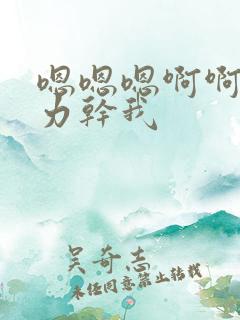 嗯嗯嗯啊啊
力幹我
吴奇志
未经同意禁止转载